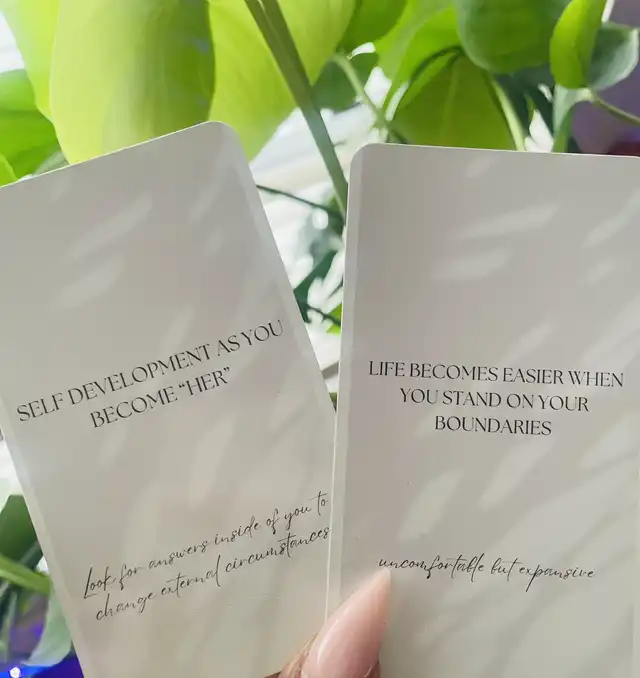 SELF DEVELOPMENT AS YOU
BECOME “HER”
Look for answers inside of you to
change external circumstances
LIFE BECOMES EASIER WHEN
YOU STAND ON YOUR
BOUNDARIES
uncomfortable but expansive